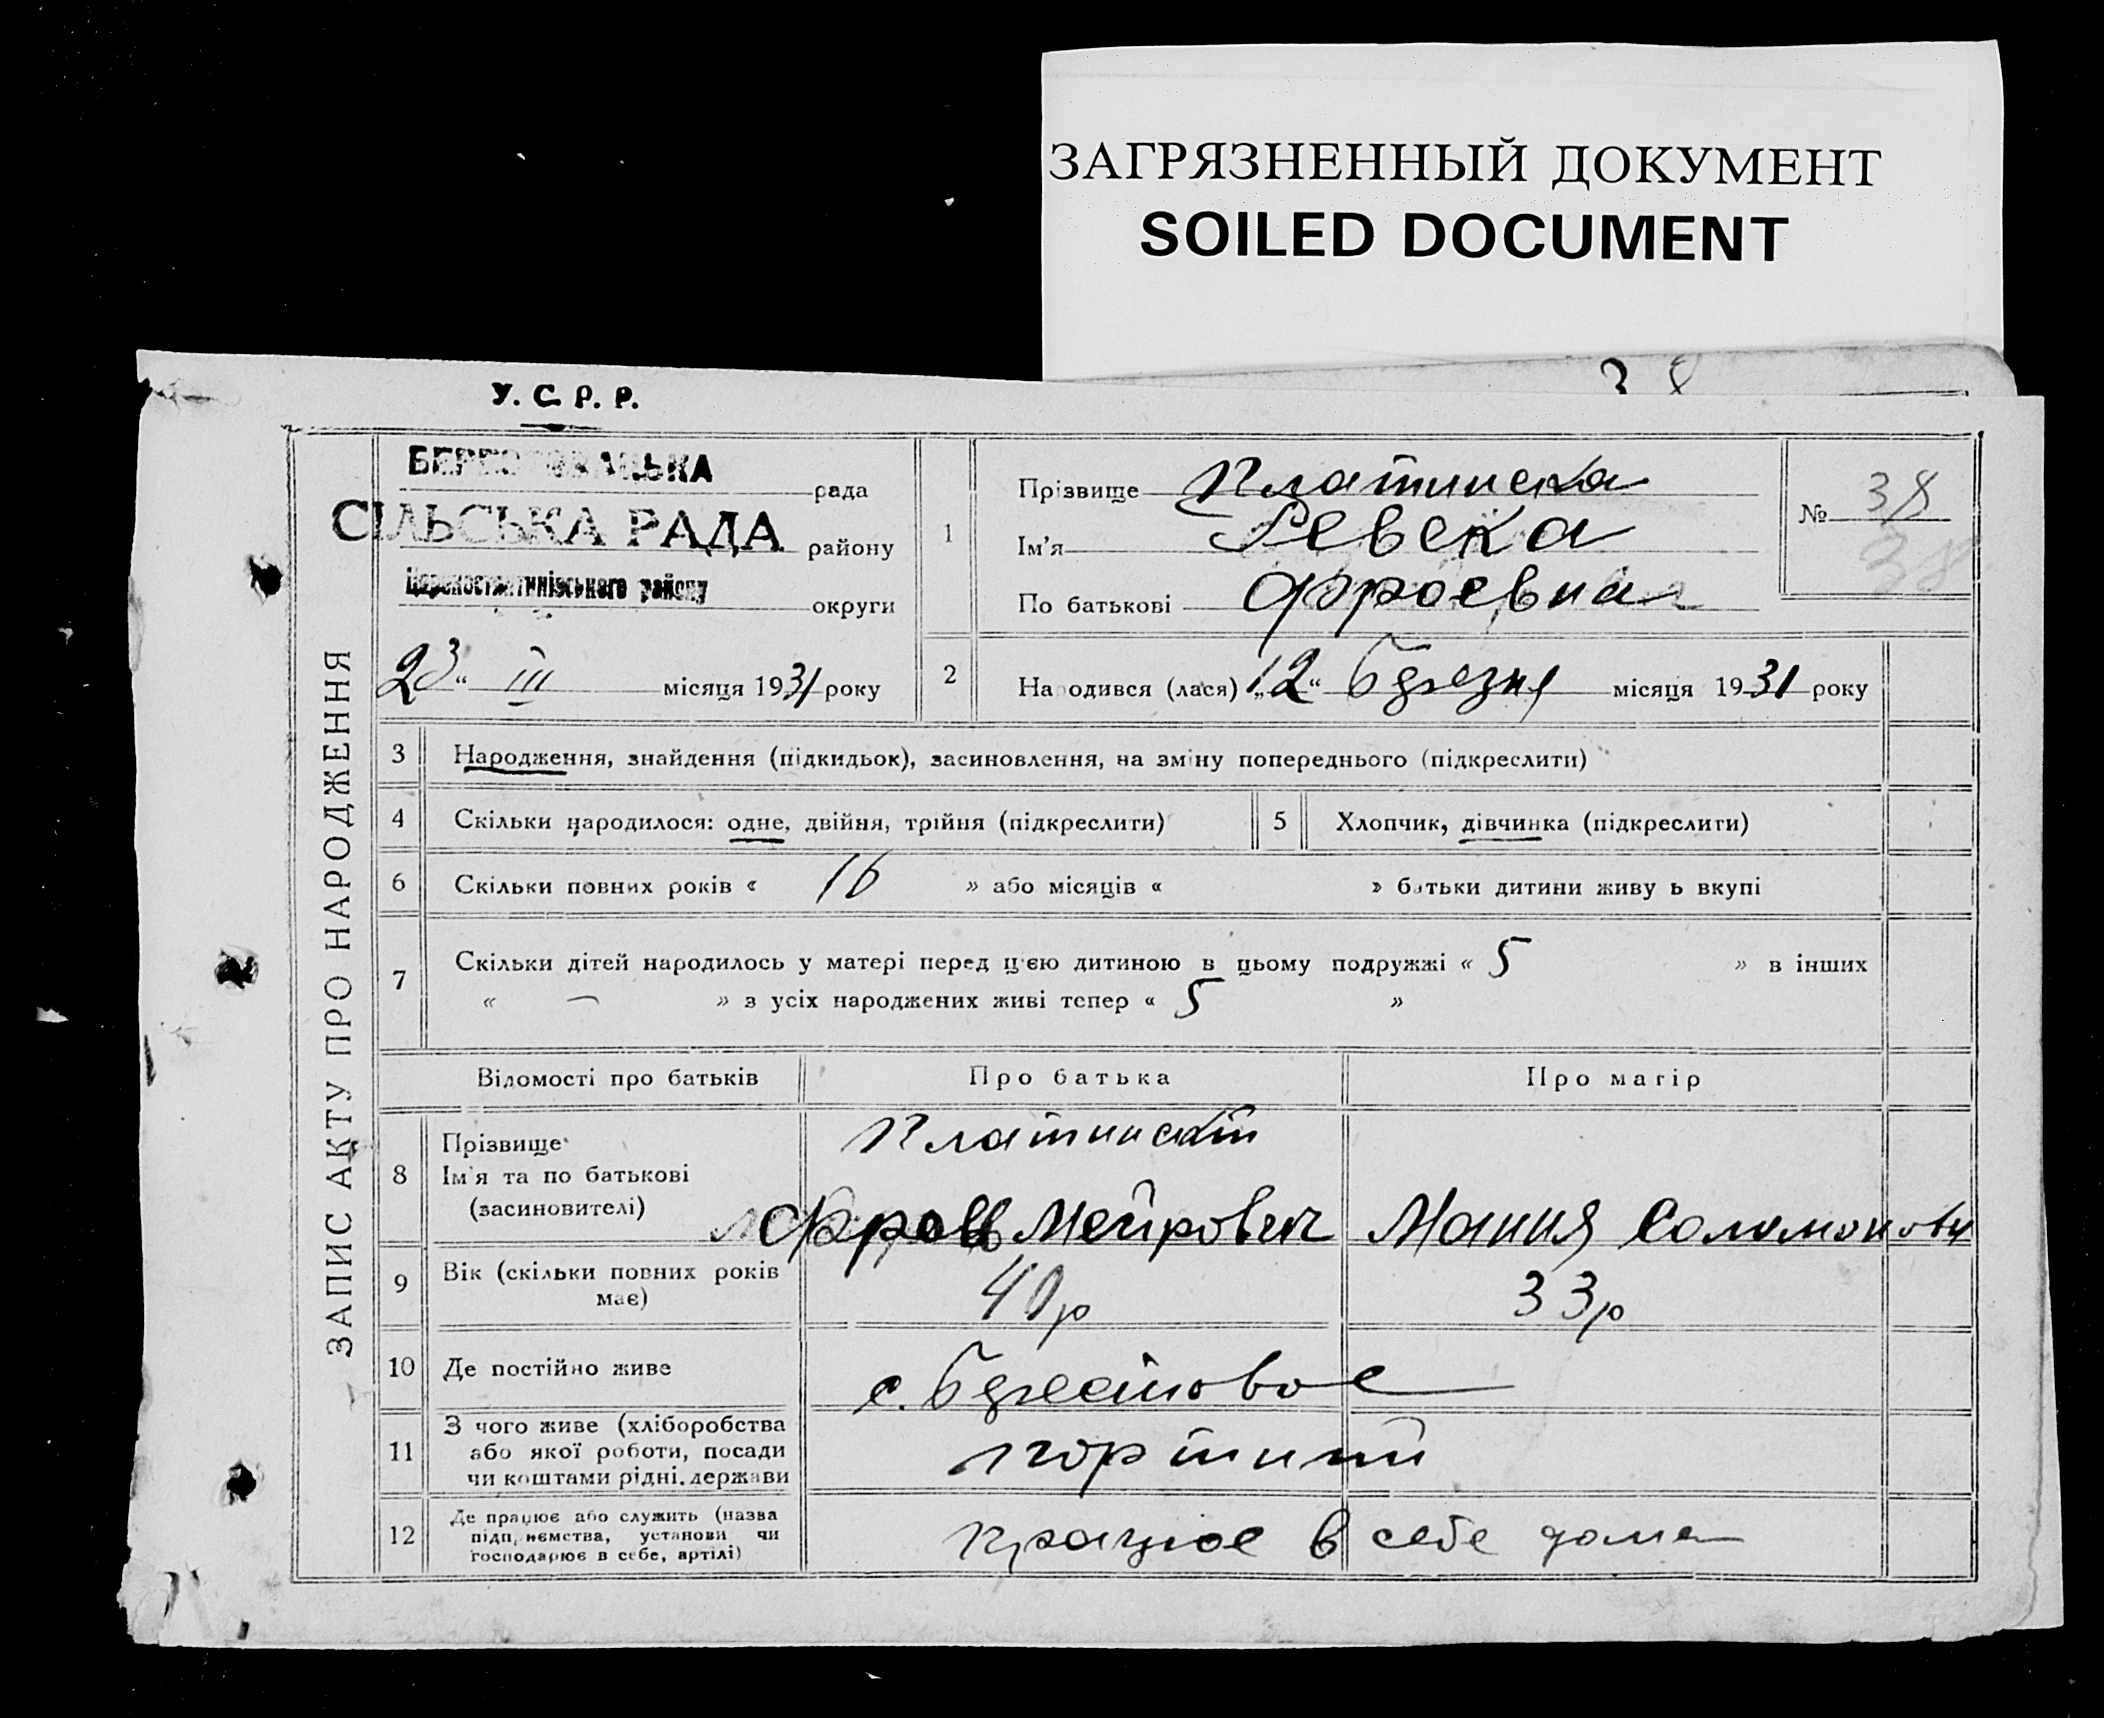 ЗАГРЯЗНЕННЫЙ ДОКУМЕНТ
SOILED DOCUMENT
38
У. С. Р. Р.
ЗАПИС АКТУ ПРО НАРОДЖЕННЯ
рада
СІЛЬСЬКА РАДА району
Царекостянтинівського району
округи
23 " III місяця 1931 року
1 Прізвище Платинска
Ім'я Ревека
По батькові
№ 38
38
2 Народився (лася) „12" березня місяця 1931 року
3 Народження, знайдення (підкидьок), засиновлення, на зміну попереднього (підкреслити)
4 Скільки народилося: одне, двійня, трійня (підкреслити)
5 Хлопчик, дівчинка (підкреслити)
6 Скільки повних років « 16 » або місяців « » батьки дитини живуть вкупі
7 Скільки дітей народилось у матері перед цією дитиною в цьому подружжі « 5 » в інших
« — » з усіх народжених живі тепер « 5 »
Відомості про батьків Про батька Про матір
8 Прізвище
Ім'я та по батькові
(засиновителі)
Платинскій
Мейрович
Мания Соломонови
9 Вік (скільки повних років
має)
40р
33р
10 Де постійно живе
с. Берестовое
11 З чого живе (хліборобства
або якої роботи, посади
чи коштами рідні, держави
портний
12 Де працює або служить (назва
підприємства, установи чи
господарює в себе, артілі)
працює в себе дома